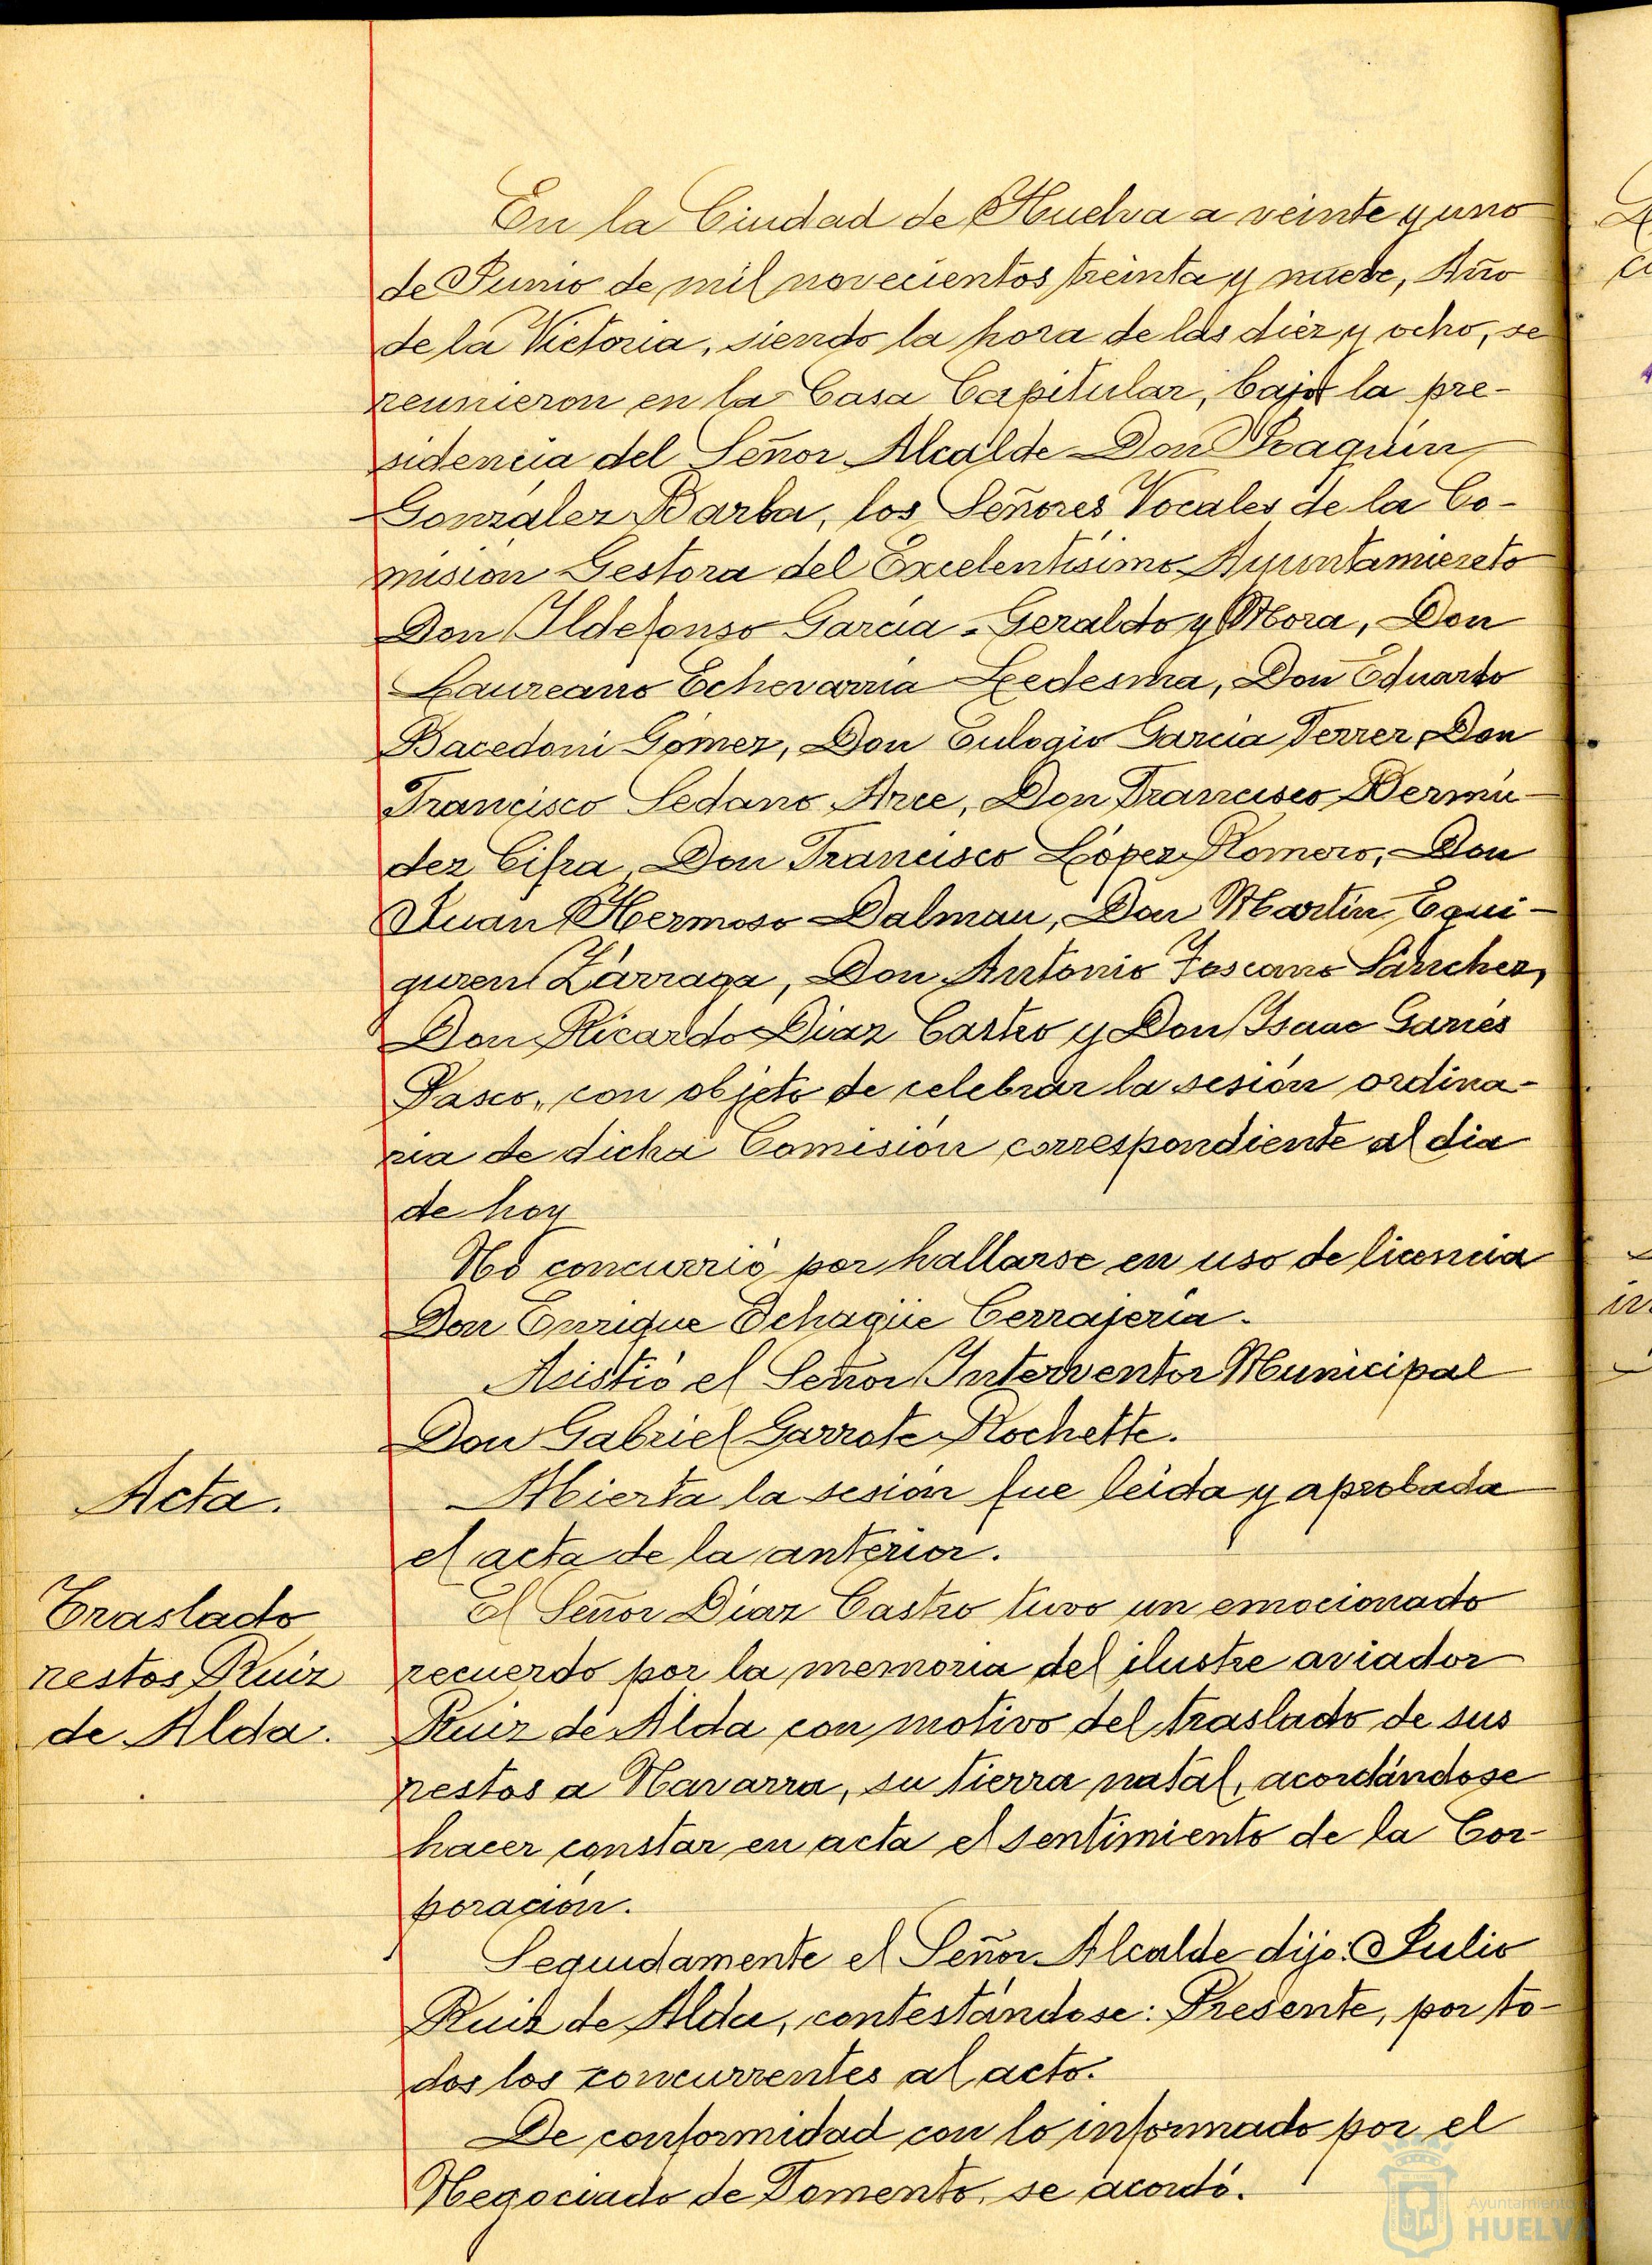 En la Ciudad de Huelva a veinte y uno
de Junio de mil novecientos treinta y nueve, Año
de la Victoria, siendo la hora de las diez y ocho, se
reunieron en la Casa Capitular, bajo la pre-
sidencia del Señor Alcalde Don Joaquin
González Barba, los Señores Vocales de la Co-
misión Gestora del Excelentísimo Ayuntamiento
Don Ildefonso García-Geraldo y Mora, Don
Laureano Echevarria Ledesma, Don Eduardo
Bacedoni Gómez, Don Eulogio Garcia Ferrer, Don
Francisco Sedano Arce, Don Francisco Bermú-
dez Cifra, Don Francisco López Romero, Don
Juan Hermoso Dalmau, Don Martin Equi-
guren Zárraga, Don Antonio Toscano Sánchez,
Don Ricardo Diaz Castro y Don Isaac Garcés
Pasco, con objeto de celebrar la sesión ordina-
ria de dicha Comisión correspondiente al dia
de hoy
No concurrió por hallarse en uso de licencia
Don Enrique Echagüe Cerrajeria.
Asistió el Señor Interventor Municipal
Don Gabriel Garrote Rochette.
Acta.
Abierta la sesión fue leida y aprobada
el acta de la anterior.
Traslado
restos Ruiz
de Alda.
El Señor Díaz Castro tuvo un emocionado
recuerdo por la memoria del ilustre aviador
Ruiz de Alda con motivo del traslado de sus
restos a Navarra, su tierra natal, acordándose
hacer constar en acta el sentimiento de la Cor-
poración.
Seguidamente el Señor Alcalde dijo: Julio
Ruiz de Alda, contestándose: Presente, por to-
dos los concurrentes al acto.
De conformidad con lo informado por el
Negociado de Fomento, se acordó.
Ayuntamiento de
HUELVA